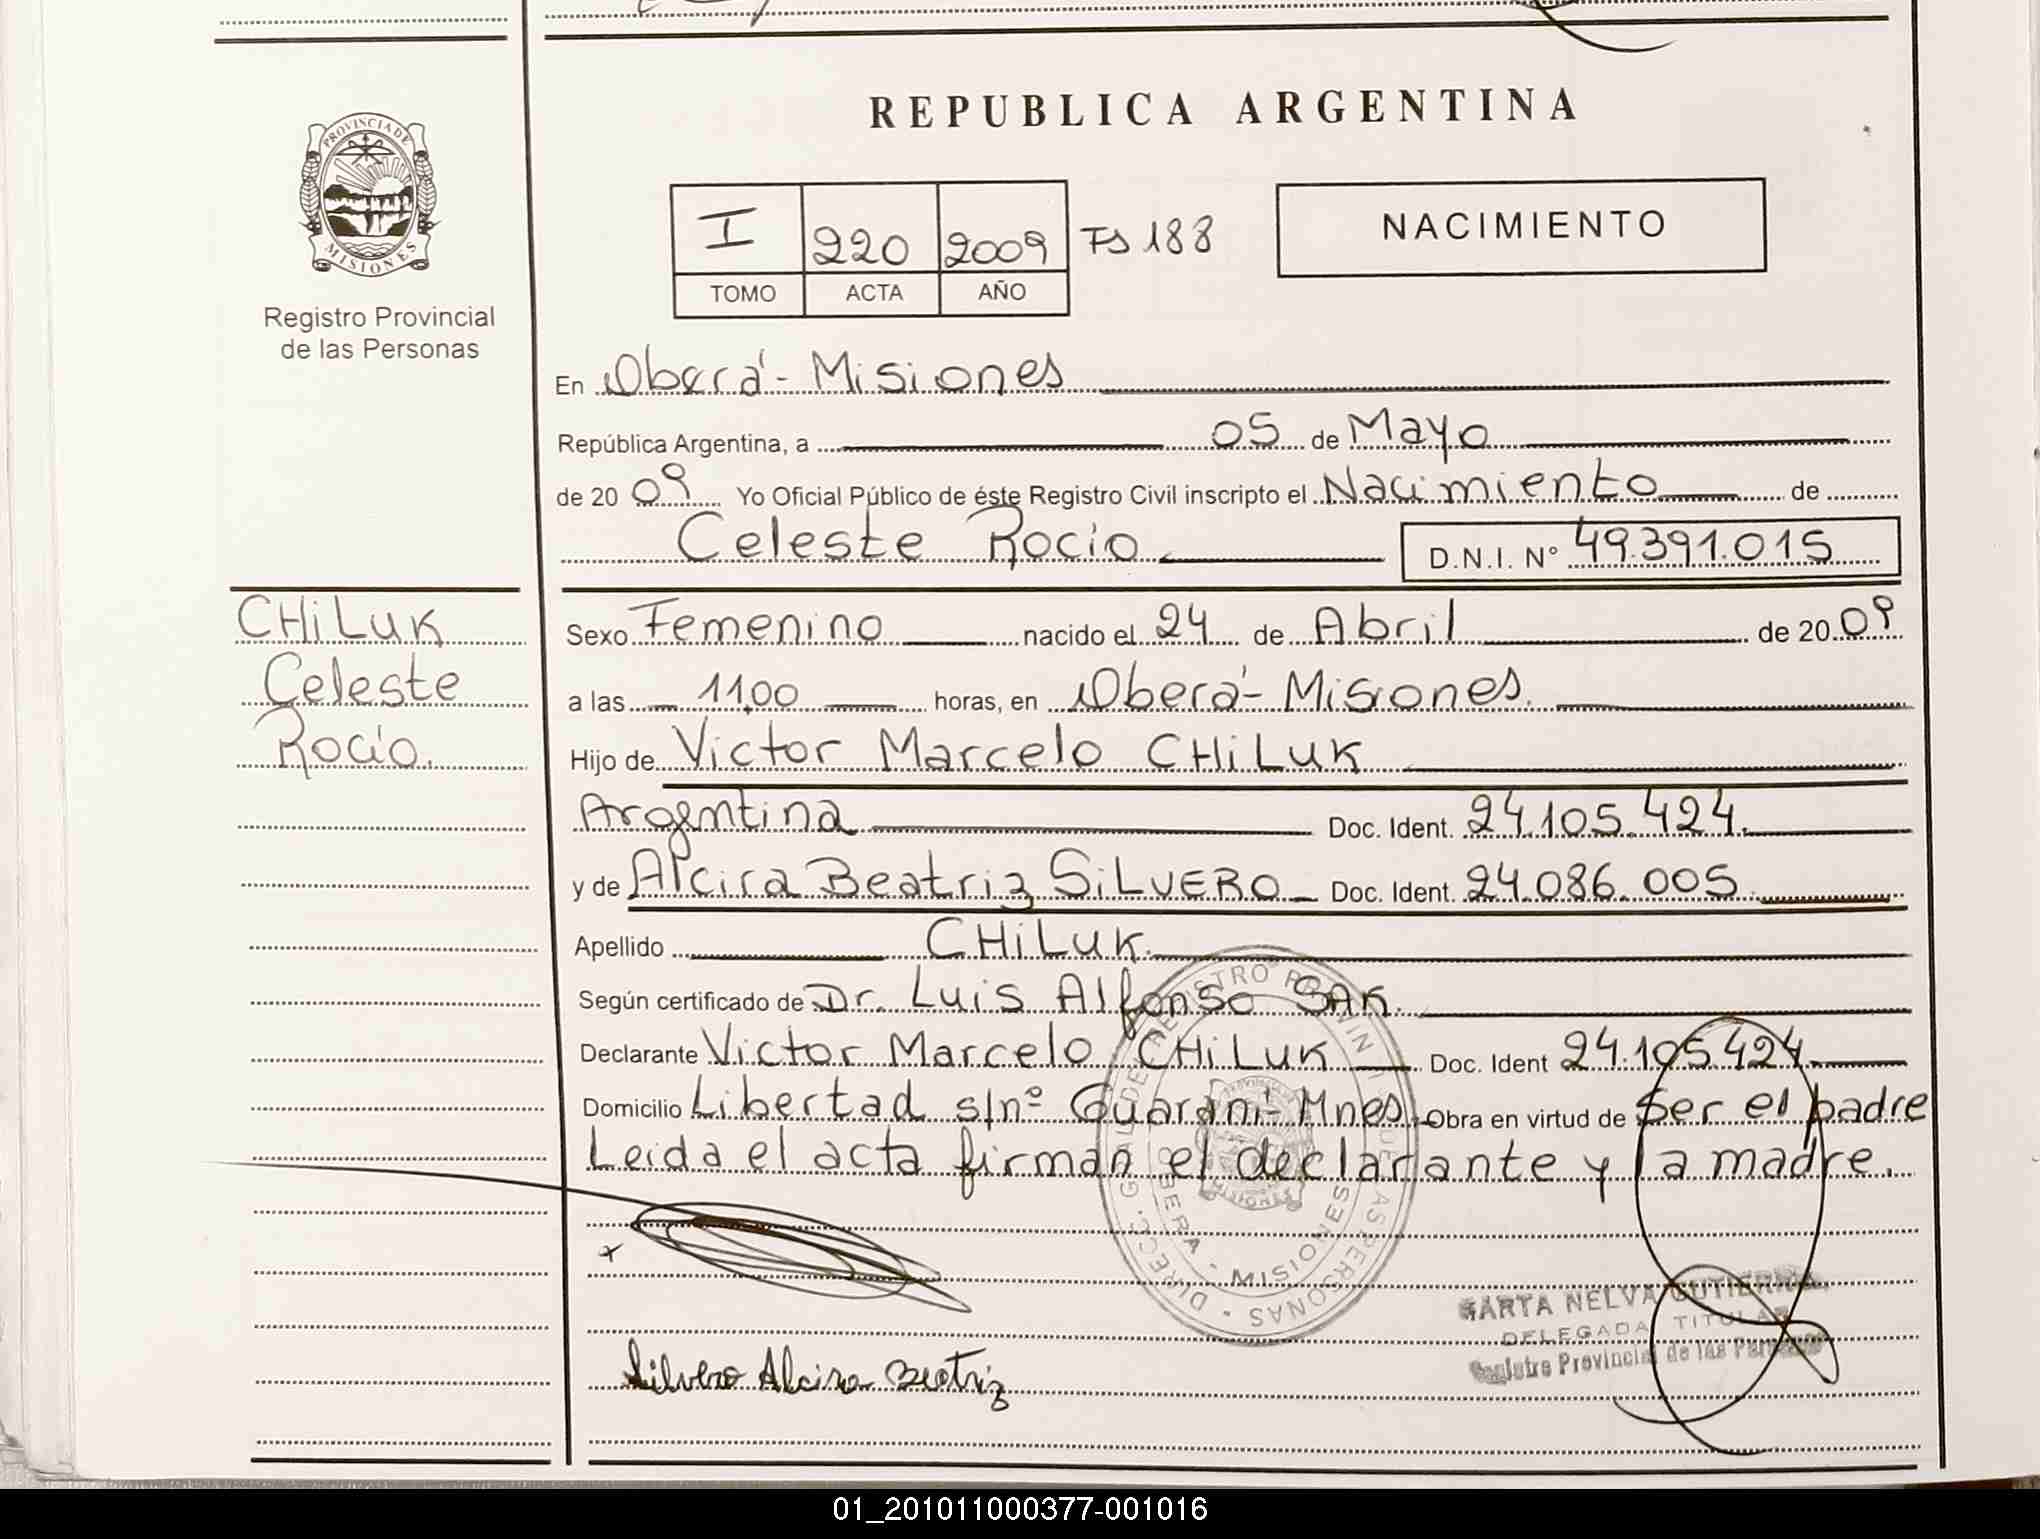 REPUBLICA ARGENTINA
PROVINCIA DE
MISIONES
I 220 2009 Fs 188
TOMO ACTA AÑO
NACIMIENTO
Registro Provincial
de las Personas
En Oberá - Misiones
República Argentina, a 05 de Mayo
de 20 09 Yo Oficial Público de éste Registro Civil inscripto el Nacimiento de
Celeste Rocío D.N.I. Nº 49.391.015
CHiLuK
Celeste
Rocío.
Sexo Femenino nacido el 24 de Abril de 20 09
a las 11,00 horas, en Oberá - Misiones.
Hijo de Victor Marcelo CHiLuK
Argentina Doc. Ident. 24.105.424.
y de Alcira Beatriz SiLVERO Doc. Ident. 24.086.005.
Apellido CHiLuK.
Según certificado de Dr. Luis Alfonso SAK.
Declarante Victor Marcelo CHiLuK Doc. Ident 24.105.424.
Domicilio Libertad s/nº Guaraní - Mnes. Obra en virtud de ser el padre
Leida el acta firman el declarante y la madre.
DIRECC. GRAL DE REGISTRO PROVINCIAL DE LAS PERSONAS
OBERA - MISIONES
x
NELVA GUTIERREZ
DELEGADA TITULAR
Registro Provincial de las Personas
Silvero Alcira Beatriz
01_201011000377-001016